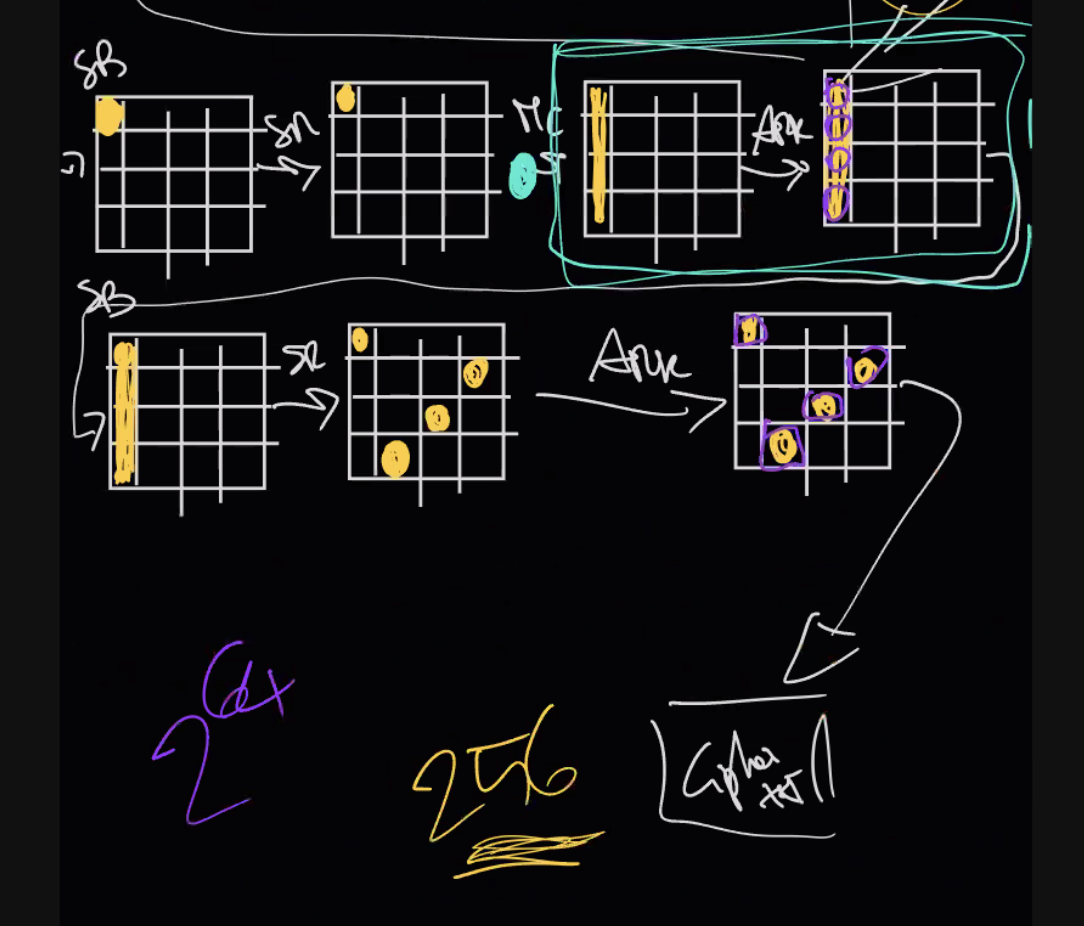 SB
SR
MC
ARK
SB
SR
ARK
2^64
256
Cipher
txt